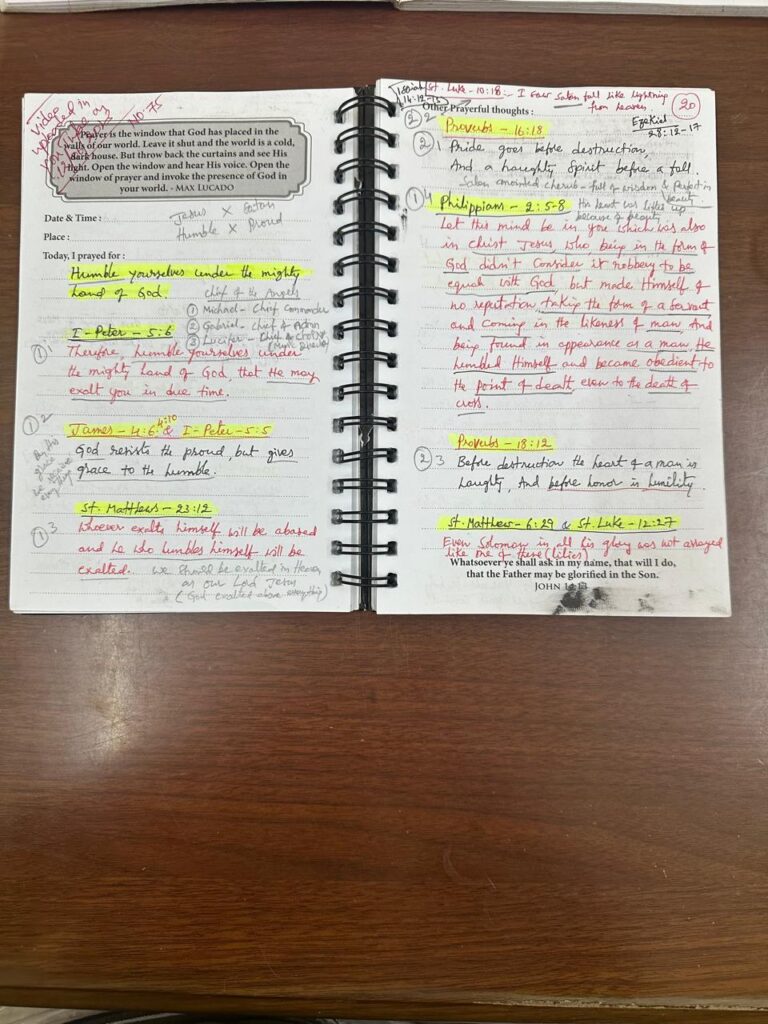 Videoed in
NO:75
"Prayer is the window that God has placed in the
walls of our world. Leave it shut and the world is a cold,
dark house. But throw back the curtains and see His
light. Open the window and hear His voice. Open the
window of prayer and invoke the presence of God in
your world. - MAX LUCADO
Date & Time : Jesus X Satan
Place : Humble X Proud
Today, I prayed for :
Humble yourselves under the mighty
hand of God.
Chief of the Angels
① Michael - Chief Commander
② Gabriel - Chief of Admn
③ Lucifer - Chief of
I - Peter - 5:6
① 1 Therefore, humble yourselves under
the mighty hand of God, that He may
exalt you in due time.
① 2 James - 4:6 4:10 & I - Peter - 5:5
God resists the proud, but gives
grace to the humble.
St. Matthew - 23:12
① 3 Whoever exalts himself will be abased
and he who humbles himself will be
exalted. We should be exalted in Heaven
as our Lord Jesus
(God exalted above everything)
Isaiah 14:12-15
St. Luke - 10:18 - I saw Satan fall like lightning
from heaven
20
Other Prayerful thoughts :
Ezekiel
28:12-17
② 2 Proverbs - 16:18
② 1 Pride goes before destruction,
And a haughty Spirit before a fall.
Satan anointed cherub - full of wisdom & Perfect in
beauty
① 4 Philippians - 2:5-8 His heart was lifted up
because of beauty
Let this mind be in you which was also
in Christ Jesus who being in the form of
God didn't consider it robbery to be
equal with God but made Himself of
no reputation, taking the form of a servant
and coming in the likeness of man. And
being found in appearance as a man, He
humbled Himself and became obedient to
the point of death even to the death of
cross.
Proverbs - 18:12
② 3 Before destruction the heart of a man is
haughty, And before honor is humility.
St. Matthew - 6:29 & St. Luke - 12:27
Even Solomon in all his glory was not arrayed
like one of these (lilies)
Whatsoever ye shall ask in my name, that will I do,
that the Father may be glorified in the Son.
JOHN